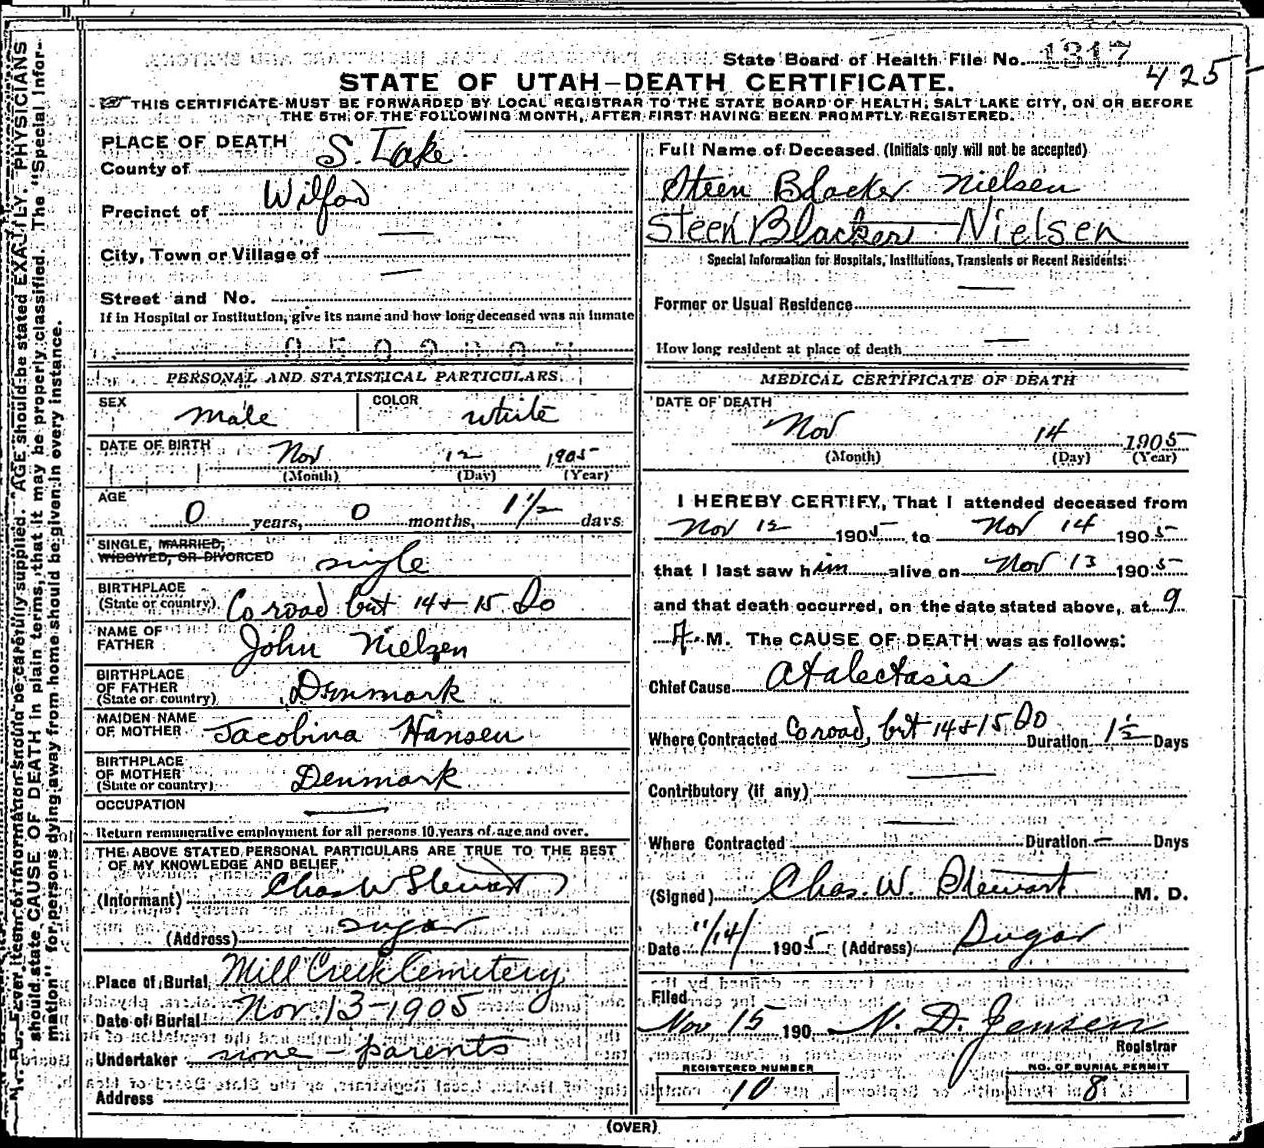 State Board of Health File No. 1317
425
STATE OF UTAH—DEATH CERTIFICATE.
THIS CERTIFICATE MUST BE FORWARDED BY LOCAL REGISTRAR TO THE STATE BOARD OF HEALTH, SALT LAKE CITY, ON OR BEFORE
THE 5TH OF THE FOLLOWING MONTH, AFTER FIRST HAVING BEEN PROMPTLY REGISTERED.
PLACE OF DEATH
County of S. Lake
Precinct of Wilford
City, Town or Village of —
Street and No. —
If in Hospital or Institution, give its name and how long deceased was an inmate
PERSONAL AND STATISTICAL PARTICULARS.
SEX male COLOR white
DATE OF BIRTH Nov 12 1905
(Month) (Day) (Year)
AGE 0 years, 0 months, 1½ days
SINGLE, MARRIED,
WIDOWED, OR DIVORCED single
BIRTHPLACE
(State or country) Co road bet 14 + 15 So
NAME OF
FATHER John Nielsen
BIRTHPLACE
OF FATHER
(State or country) Denmark
MAIDEN NAME
OF MOTHER Jacobina Hansen
BIRTHPLACE
OF MOTHER
(State or country) Denmark
OCCUPATION —
Return remunerative employment for all persons 10 years of age and over.
THE ABOVE STATED PERSONAL PARTICULARS ARE TRUE TO THE BEST
OF MY KNOWLEDGE AND BELIEF
(Informant) Chas W Stewart
(Address) Sugar
Place of Burial Mill Creek Cemetery
Date of Burial Nov. 13-1905
Undertaker none - parents
Address
Full Name of Deceased (Initials only will not be accepted)
Steen Blacker Nielsen
Steen Blacker Nielsen
Special Information for Hospitals, Institutions, Transients or Recent Residents:
Former or Usual Residence —
How long resident at place of death —
MEDICAL CERTIFICATE OF DEATH
DATE OF DEATH
Nov 14 1905
(Month) (Day) (Year)
I HEREBY CERTIFY, That I attended deceased from
Nov 12 1905 to Nov 14 1905
that I last saw him alive on Nov 13 1905
and that death occurred, on the date stated above, at 9
A. M. The CAUSE OF DEATH was as follows:
Chief Cause Atalectasis
Where Contracted Co road, bet 14 + 15 So Duration 1½ Days
Contributory (if any) —
Where Contracted — Duration — Days
(Signed) Chas. W. Stewart M. D.
Date 11/14/ 1905 (Address) Sugar
Filed
Nov 15 190 N. D. Jensen
Registrar
REGISTERED NUMBER
10
NO. OF BURIAL PERMIT
8
(OVER)
N. B. Every item of information should be carefully supplied. AGE should be stated EXACTLY. PHYSICIANS
should state CAUSE OF DEATH in plain terms, that it may be properly classified. The "Special Infor-
mation" for persons dying away from home should be given in every instance.